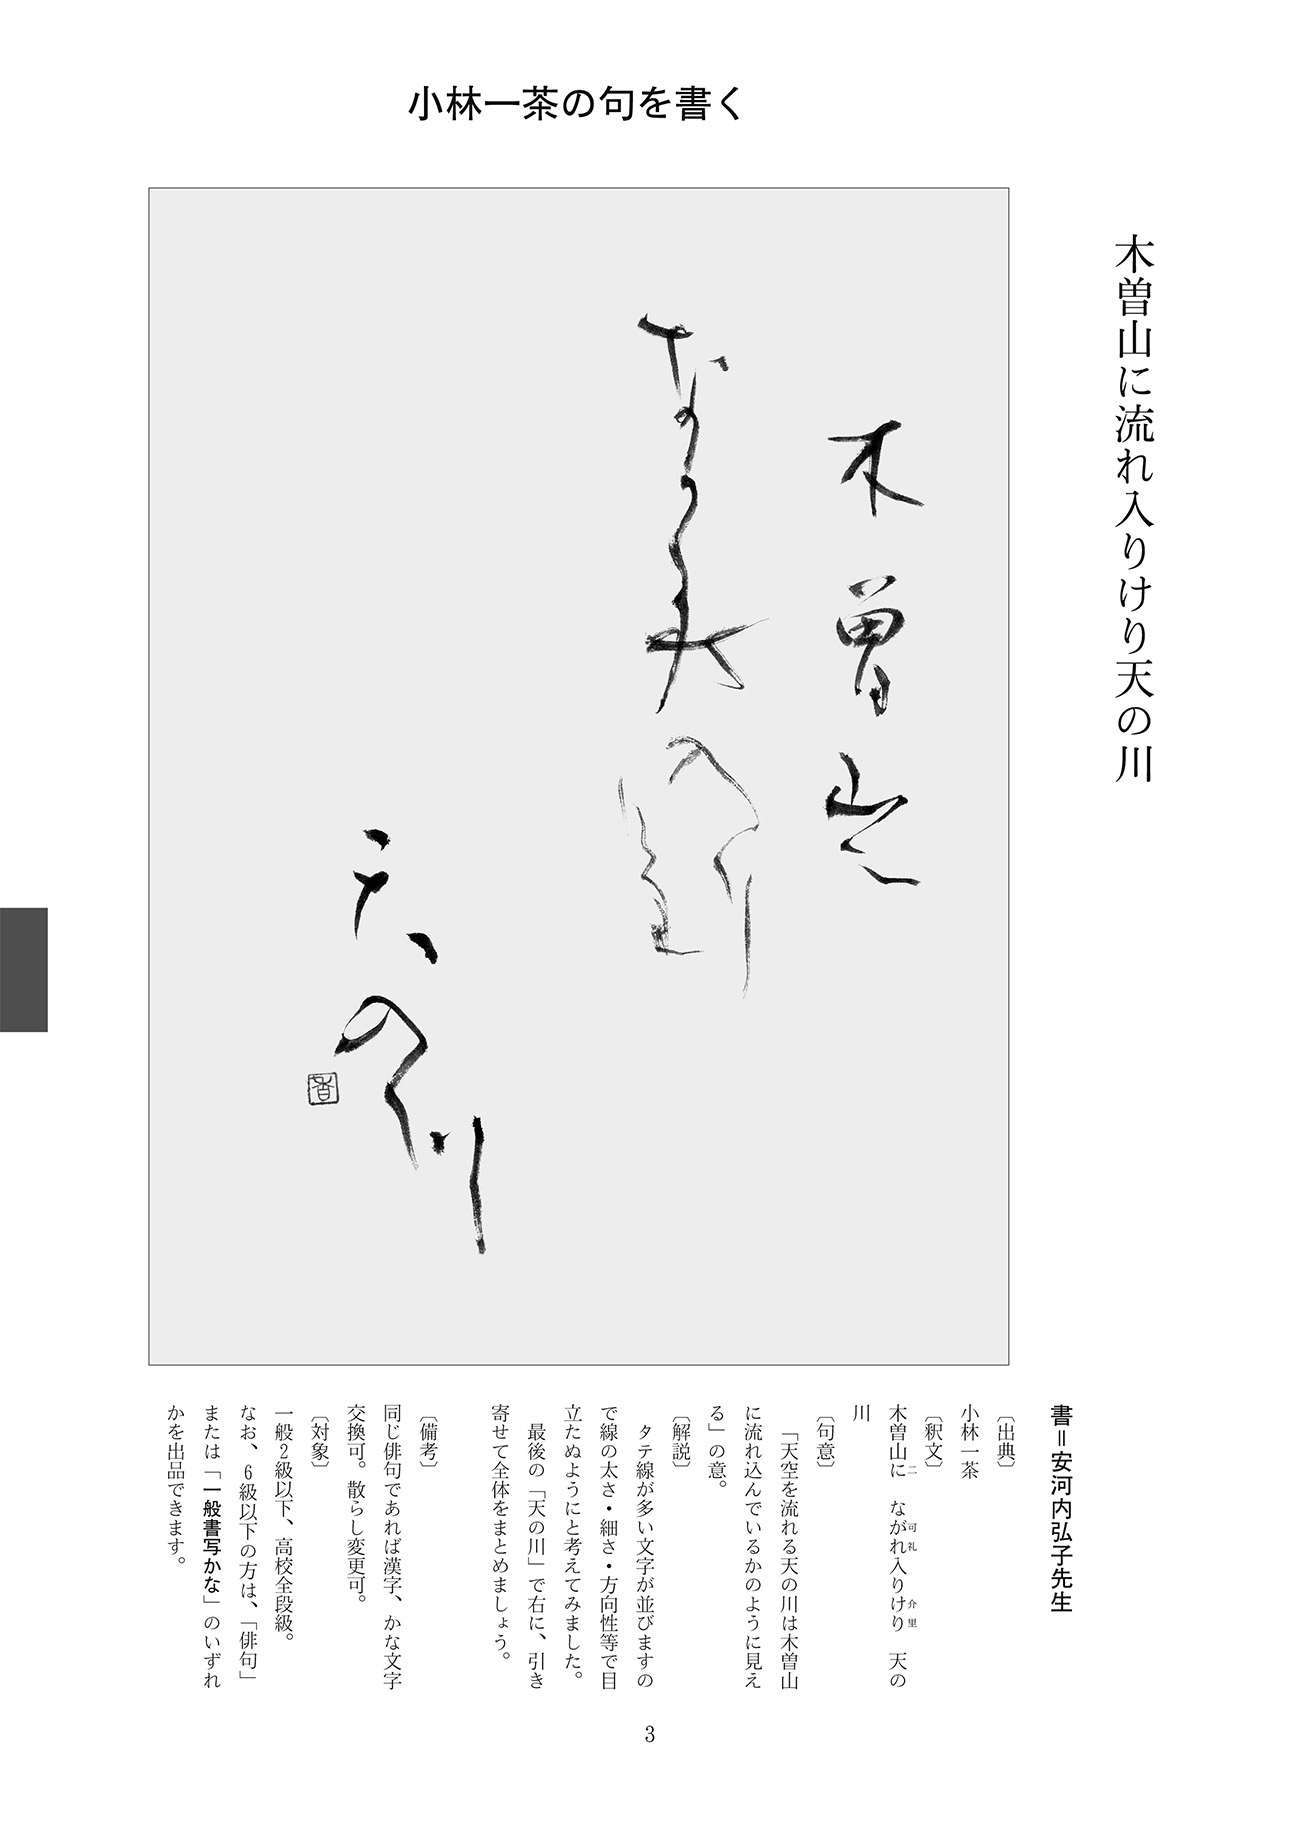 小林一茶の句を書く
木曽山に流れ入りけり天の川
木曽山二
な可礼
入り
介里
天の
川
香
書＝安河内弘子先生
〔出典〕
小林一茶
〔釈文〕
木曽山に二　ながれ可礼入りけり介里　天の
川
〔句意〕
「天空を流れる天の川は木曽山
に流れ込んでいるかのように見え
る」の意。
〔解説〕
タテ線が多い文字が並びますの
で線の太さ・細さ・方向性等で目
立たぬようにと考えてみました。
最後の「天の川」で右に、引き
寄せて全体をまとめましょう。
〔備考〕
同じ俳句であれば漢字、かな文字
交換可。散らし変更可。
〔対象〕
一般2級以下、高校全段級。
なお、6級以下の方は、「俳句」
または「一般書写かな」のいずれ
かを出品できます。
3